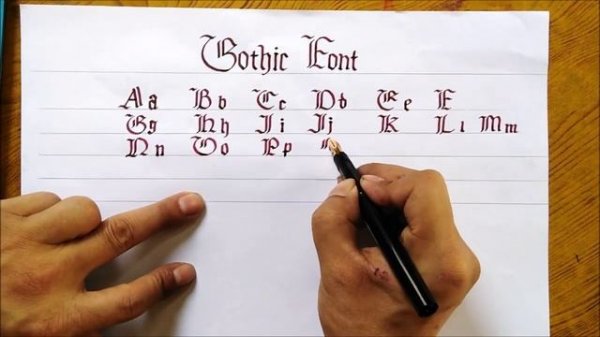 Gothic Font
Aa Bb Cc Dd Ee F
Gg Hh Ii Jj K Ll Mm
Nn Oo Pp